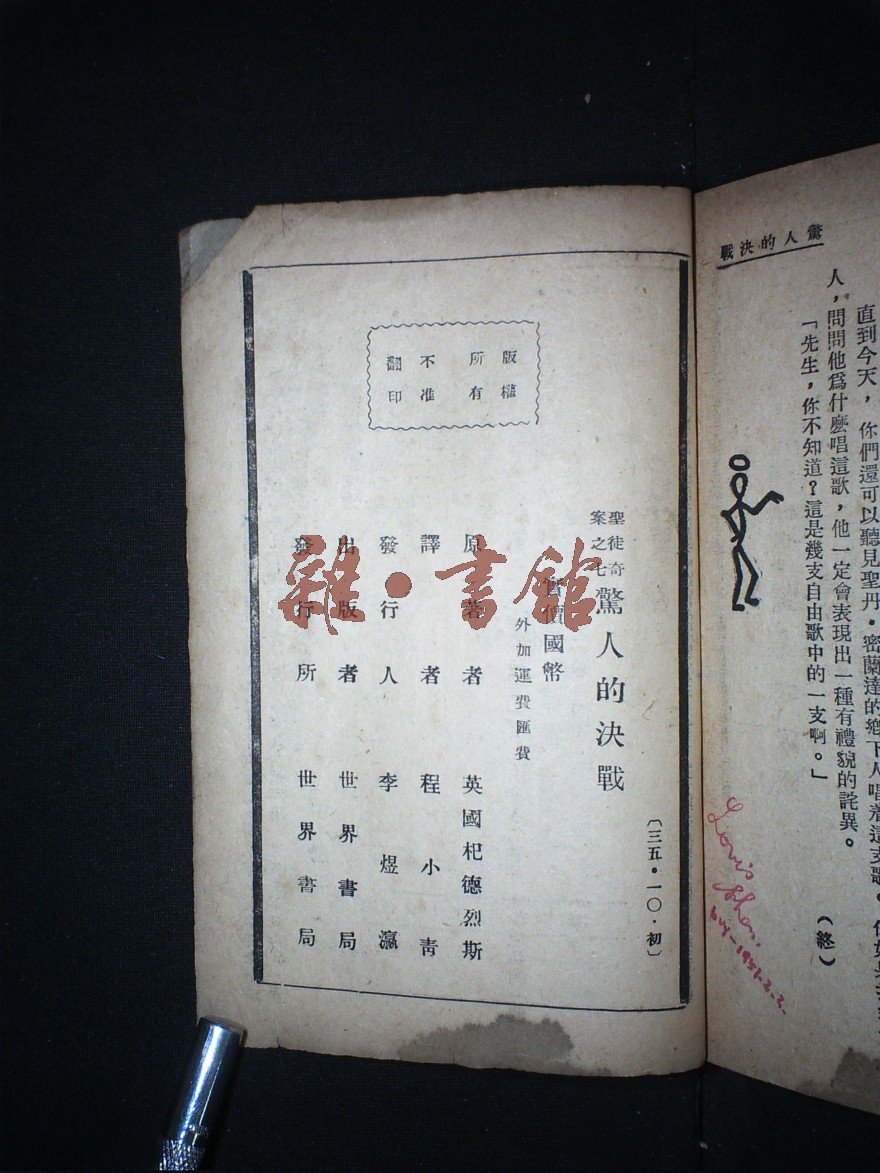 驚人的決戰
直到今天，你們還可以聽見聖丹·密蘭達的鄉下人唱着這支歌。
人，問問他爲什麽唱這歌，他一定會表現出一種有禮貌的詫異。
「先生，你不知道？這是幾支自由歌中的一支啊。」
（終）
Louis Shen.
buy-1951.2.2.
版權
所有
不准
翻印
〔三五·一〇·初〕
聖徒奇
案之七
驚人的決戰
實價國幣
外加運費匯費
原著者 英國杞德烈斯
譯者 程小青
發行人 李煜瀛
出版者 世界書局
發行所 世界書局
雜·書館